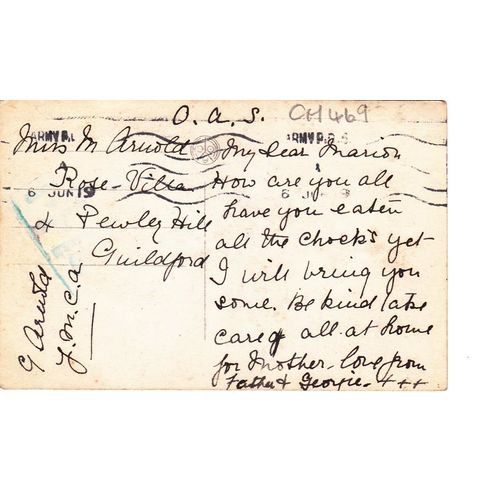 O. A. S.
CH469
ARMY P.
ARMY P.
6 JUN 19
6 JUN
Miss M Arnold
Rose-Villa
4 Pewley Hill
Guildford
G Arnold
Y. M. C. A.
My dear Marion
How are you all
have you eaten
all the chock's yet
I will bring you
some. Be kind take
care of all at home
for Mother - love from
Father & Georgie - + + +